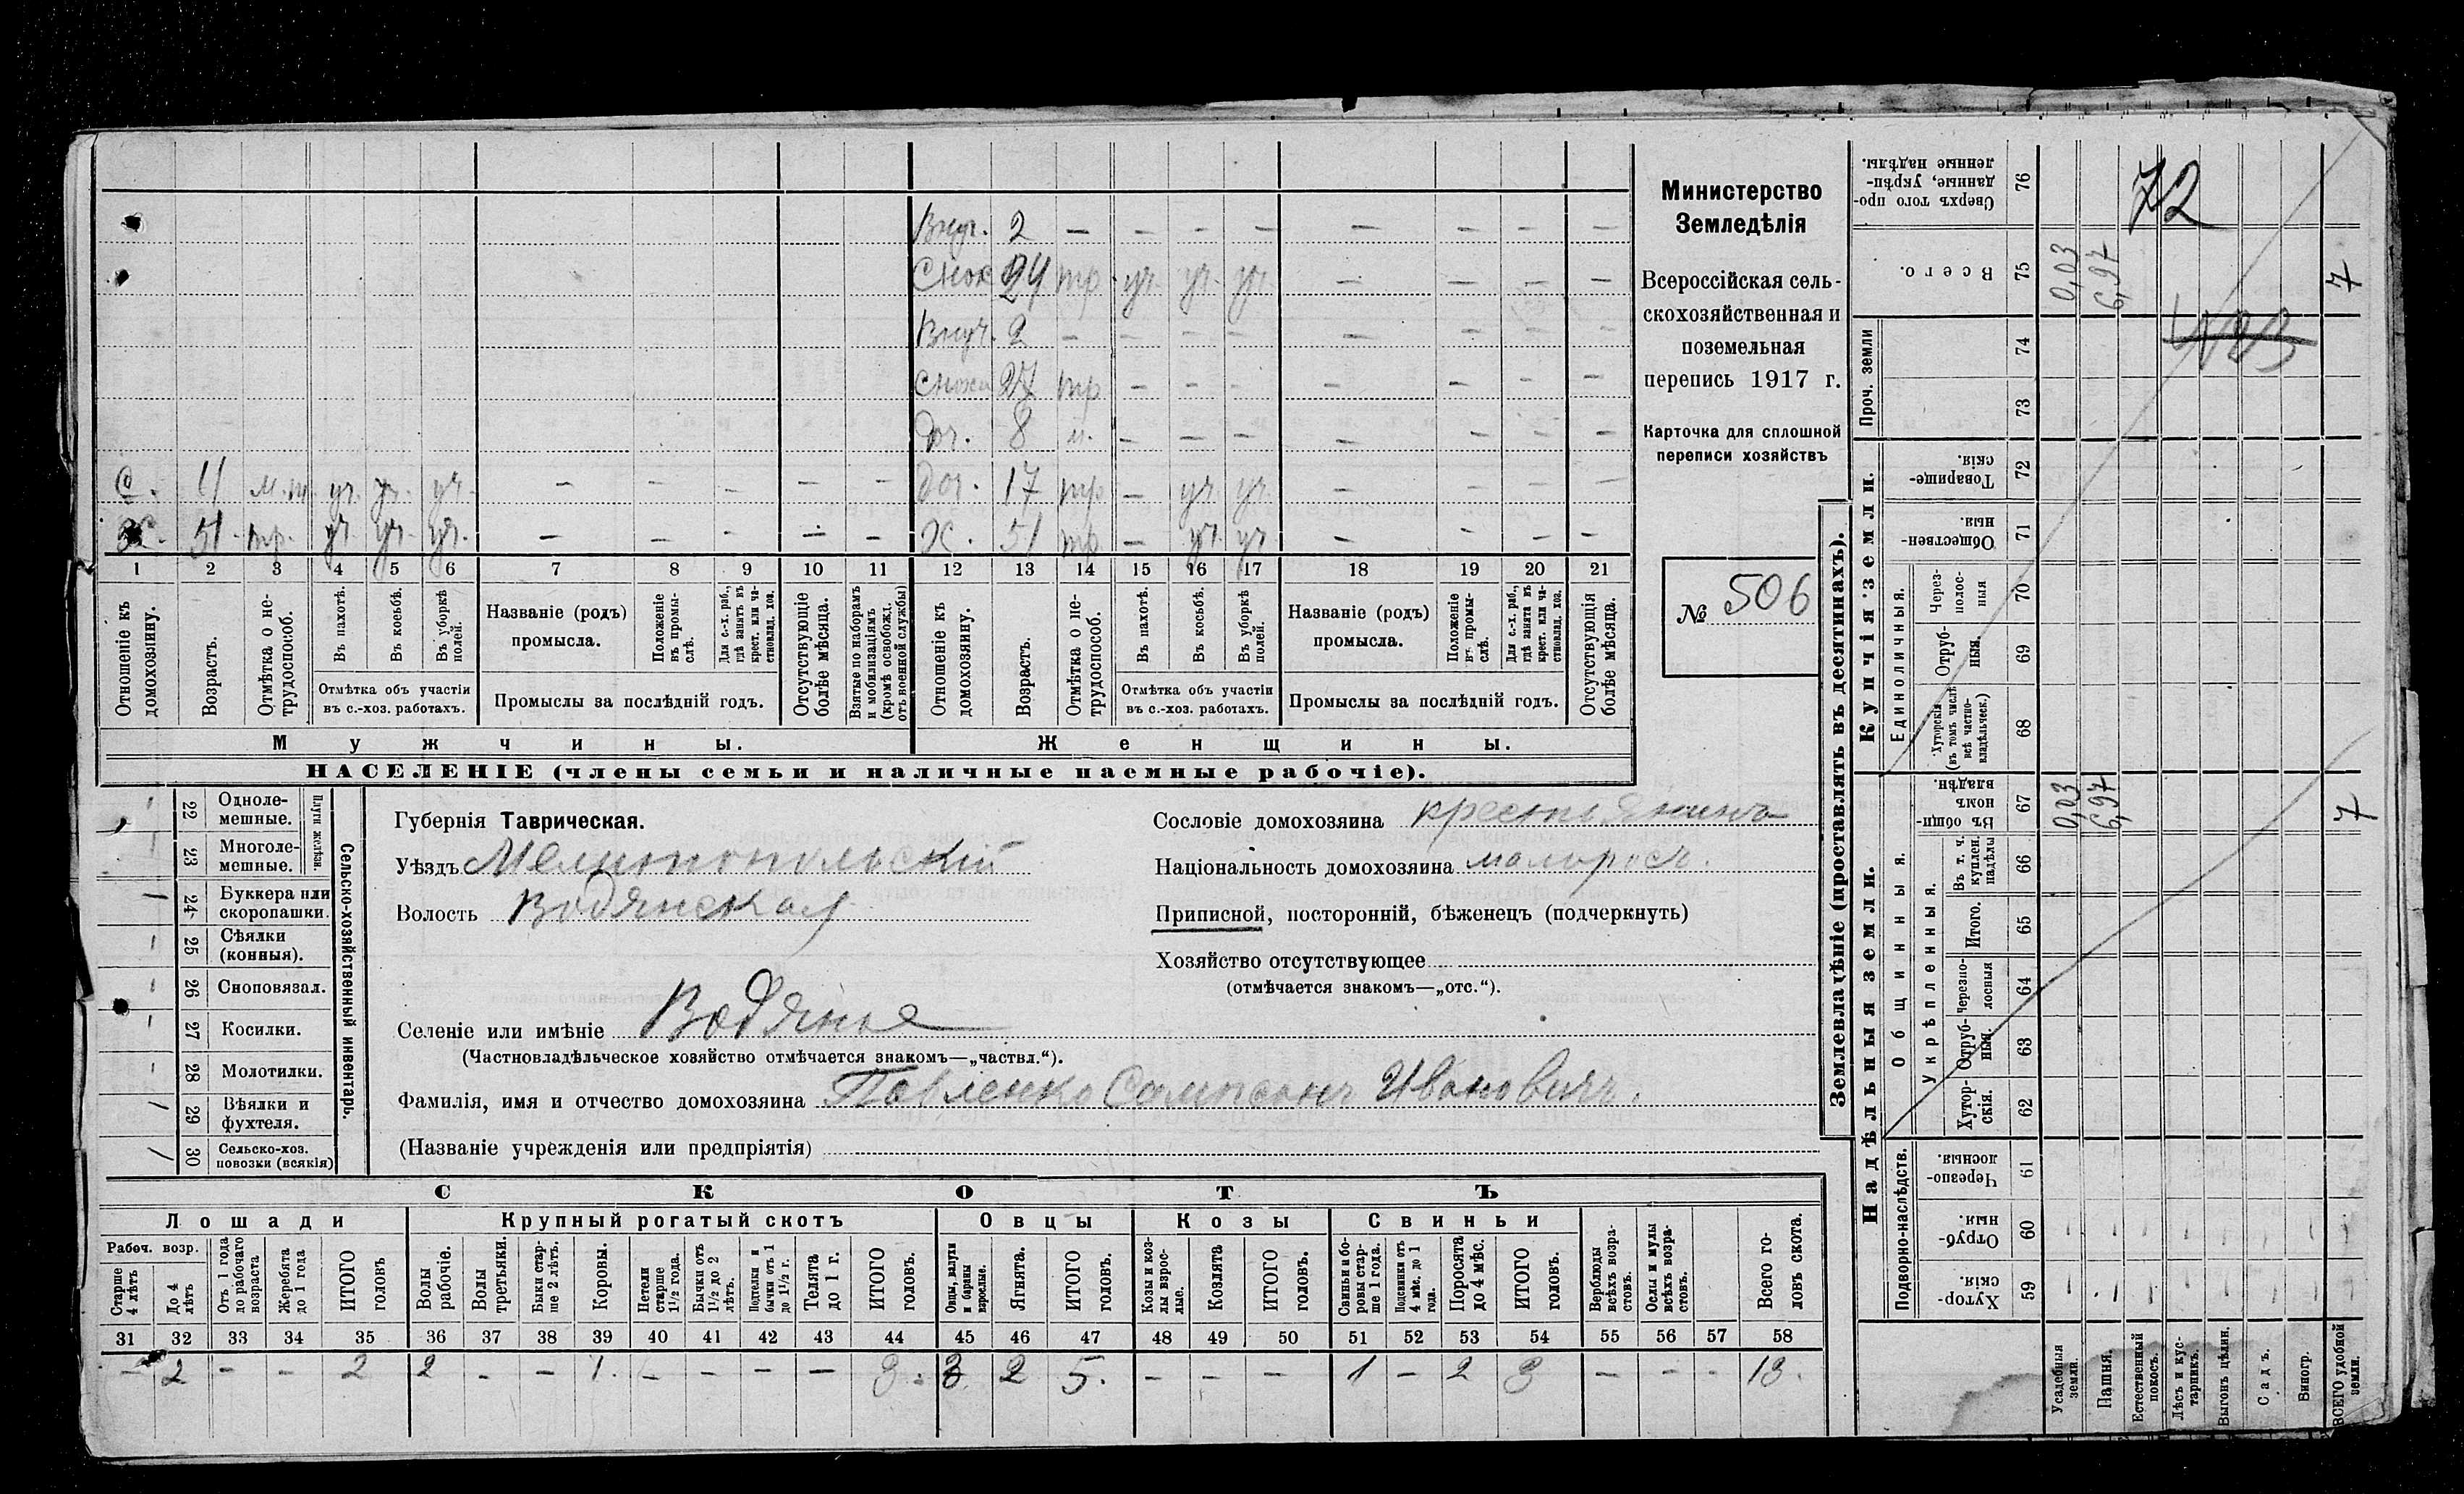 Внуч. 2 — — — — — — — —
Снох 24 тр. уч. уч. уч. — — — —
Внуч. 2 — — — — — — — —
Снохи 27 тр — — — — — — —
Доч. 8 н. — — — — — — —
С. 11 м. п. уч. уч. уч. — — — — — Доч. 17 тр — уч. уч. — — — —
Х. 51 тр. уч. уч. уч. — — — — — Ж. 51 тр — уч. уч. — — — —
1 2 3 4 5 6 7 8 9 10 11 12 13 14 15 16 17 18 19 20 21
Отношеніе къ домохозяину.
Возрастъ.
Отмѣтка о не-трудоспособ.
Въ пахотѣ.
Въ косьбѣ.
Въ уборкѣ полей.
Отмѣтка объ участіи
въ с.-хоз. работахъ.
Названіе (родъ)
промысла.
Положеніе въ промы-слѣ.
Для с.-х. раб., гдѣ занятъ въ крест. или ча-стновлад. хоз.
Промыслы за послѣдній годъ.
Отсутствующіе болѣе мѣсяца.
Взятые по наборамъ и мобилизаціямъ (кромѣ освобожд. отъ военной службы)
Отношеніе къ домохозяину.
Возрастъ.
Отмѣтка о не-трудоспособ.
Въ пахотѣ.
Въ косьбѣ.
Въ уборкѣ полей.
Отмѣтка объ участіи
въ с.-хоз. работахъ.
Названіе (родъ)
промысла.
Положеніе въ промы-слѣ.
Для с.-х. раб., гдѣ занята въ крест. или ча-стновлад. хоз.
Промыслы за послѣдній годъ.
Отсутствующія болѣе мѣсяца.
Мужчины. Женщины.
НАСЕЛЕНІЕ (члены семьи и наличные наемные рабочіе).
Министерство
Земледѣлія
Всероссійская сель-
скохозяйственная и
поземельная
перепись 1917 г.
Карточка для сплошной
переписи хозяйствъ
№ 506
22 Одноле-мешные.
23 Многоле-мешные.
Плуги желѣзн.
24 Буккера или скоропашки.
25 Сѣялки (конныя).
26 Сноповязал.
27 Косилки.
28 Молотилки.
29 Вѣялки и фухтеля.
30 Сельско-хоз. повозки (всякія)
Сельско-хозяйственный инвентарь.
Губернія Таврическая.
Уѣздъ Мелитопольскій
Волость Водянская
Селеніе или имѣніе Водяное
(Частновладѣльческое хозяйство отмѣчается знакомъ—„частвл.“).
Фамилія, имя и отчество домохозяина Павленко Сампсонъ Ивановичъ.
(Названіе учрежденія или предпріятія)
Сословіе домохозяина крестьянинъ
Національность домохозяина малоросъ.
Приписной, посторонній, бѣженецъ (подчеркнуть)
Хозяйство отсутствующее
(отмѣчается знакомъ—„отс.“).
СКОТЪ
Лошади Крупный рогатый скотъ Овцы Козы Свиньи
Рабоч. возр.
Старше 4 лѣтъ
До 4 лѣтъ
Отъ 1 года до рабочаго возраста
Жеребята до 1 года
ИТОГО головъ
Волы рабочіе.
Волы третьяки.
Быки стар-ше 2 лѣтъ.
Коровы.
Петели старше 1½ года.
Бычки отъ 1½ до 2 лѣтъ.
Подтелки и бычки отъ 1 до 1½ г.
Телята до 1 г.
ИТОГО головъ.
Овцы, валухи и бараны взрослые.
Ягнята.
ИТОГО головъ.
Козы и коз-лы взрос-лые.
Козлята
ИТОГО головъ.
Свиньи и бо-ровы стар-ше 1 года.
Подсвинки отъ 4 мѣс. до 1 года.
Поросята до 4 мѣс.
ИТОГО головъ.
Верблюды всѣхъ возра-стовъ.
Ослы и мулы всѣхъ возра-стовъ.
Всего го-ловъ скота.
31 32 33 34 35 36 37 38 39 40 41 42 43 44 45 46 47 48 49 50 51 52 53 54 55 56 57 58
— 2 — — 2 2 - — 1. — — — — 3. 3 2 5. — — — 1 — 2 3 — — - 13.
Землевладѣніе (проставлять въ десятинахъ).
72
Сверхъ того про-данные, укрѣп-денные надѣлы. 76
Всего. 75 0,03 6,97 7
Проч. земли 74
73
Купчія земли.
Товарище-скія. 72
Обществен-ныя. 71
Единоличныя.
Через-полос-ныя 70
Отруб-ныя. 69
Хуторскія (въ томъ числѣ всѣ частно-владѣльческ.) 68
Надѣльныя земли.
Общинныя.
Въ общин-номъ владѣн. 67 0,03 6,97 7
Укрѣпленныя.
Въ т. ч. куплен. надѣлы 66
Итого. 65
Черезпо-лосныя 64
Отруб-ныя. 63
Хутор-скія. 62
Подворно-наслѣдств.
Черезпо-лосныя 61
Отруб-ныя. 60
Хутор-скія 59
Усадебныя земли.
Пашня.
Естественный покосъ.
Лѣсъ и кус-тарникъ.
Выгонъ цѣлин.
Садъ.
Виногр.
ВСЕГО удобной земли.